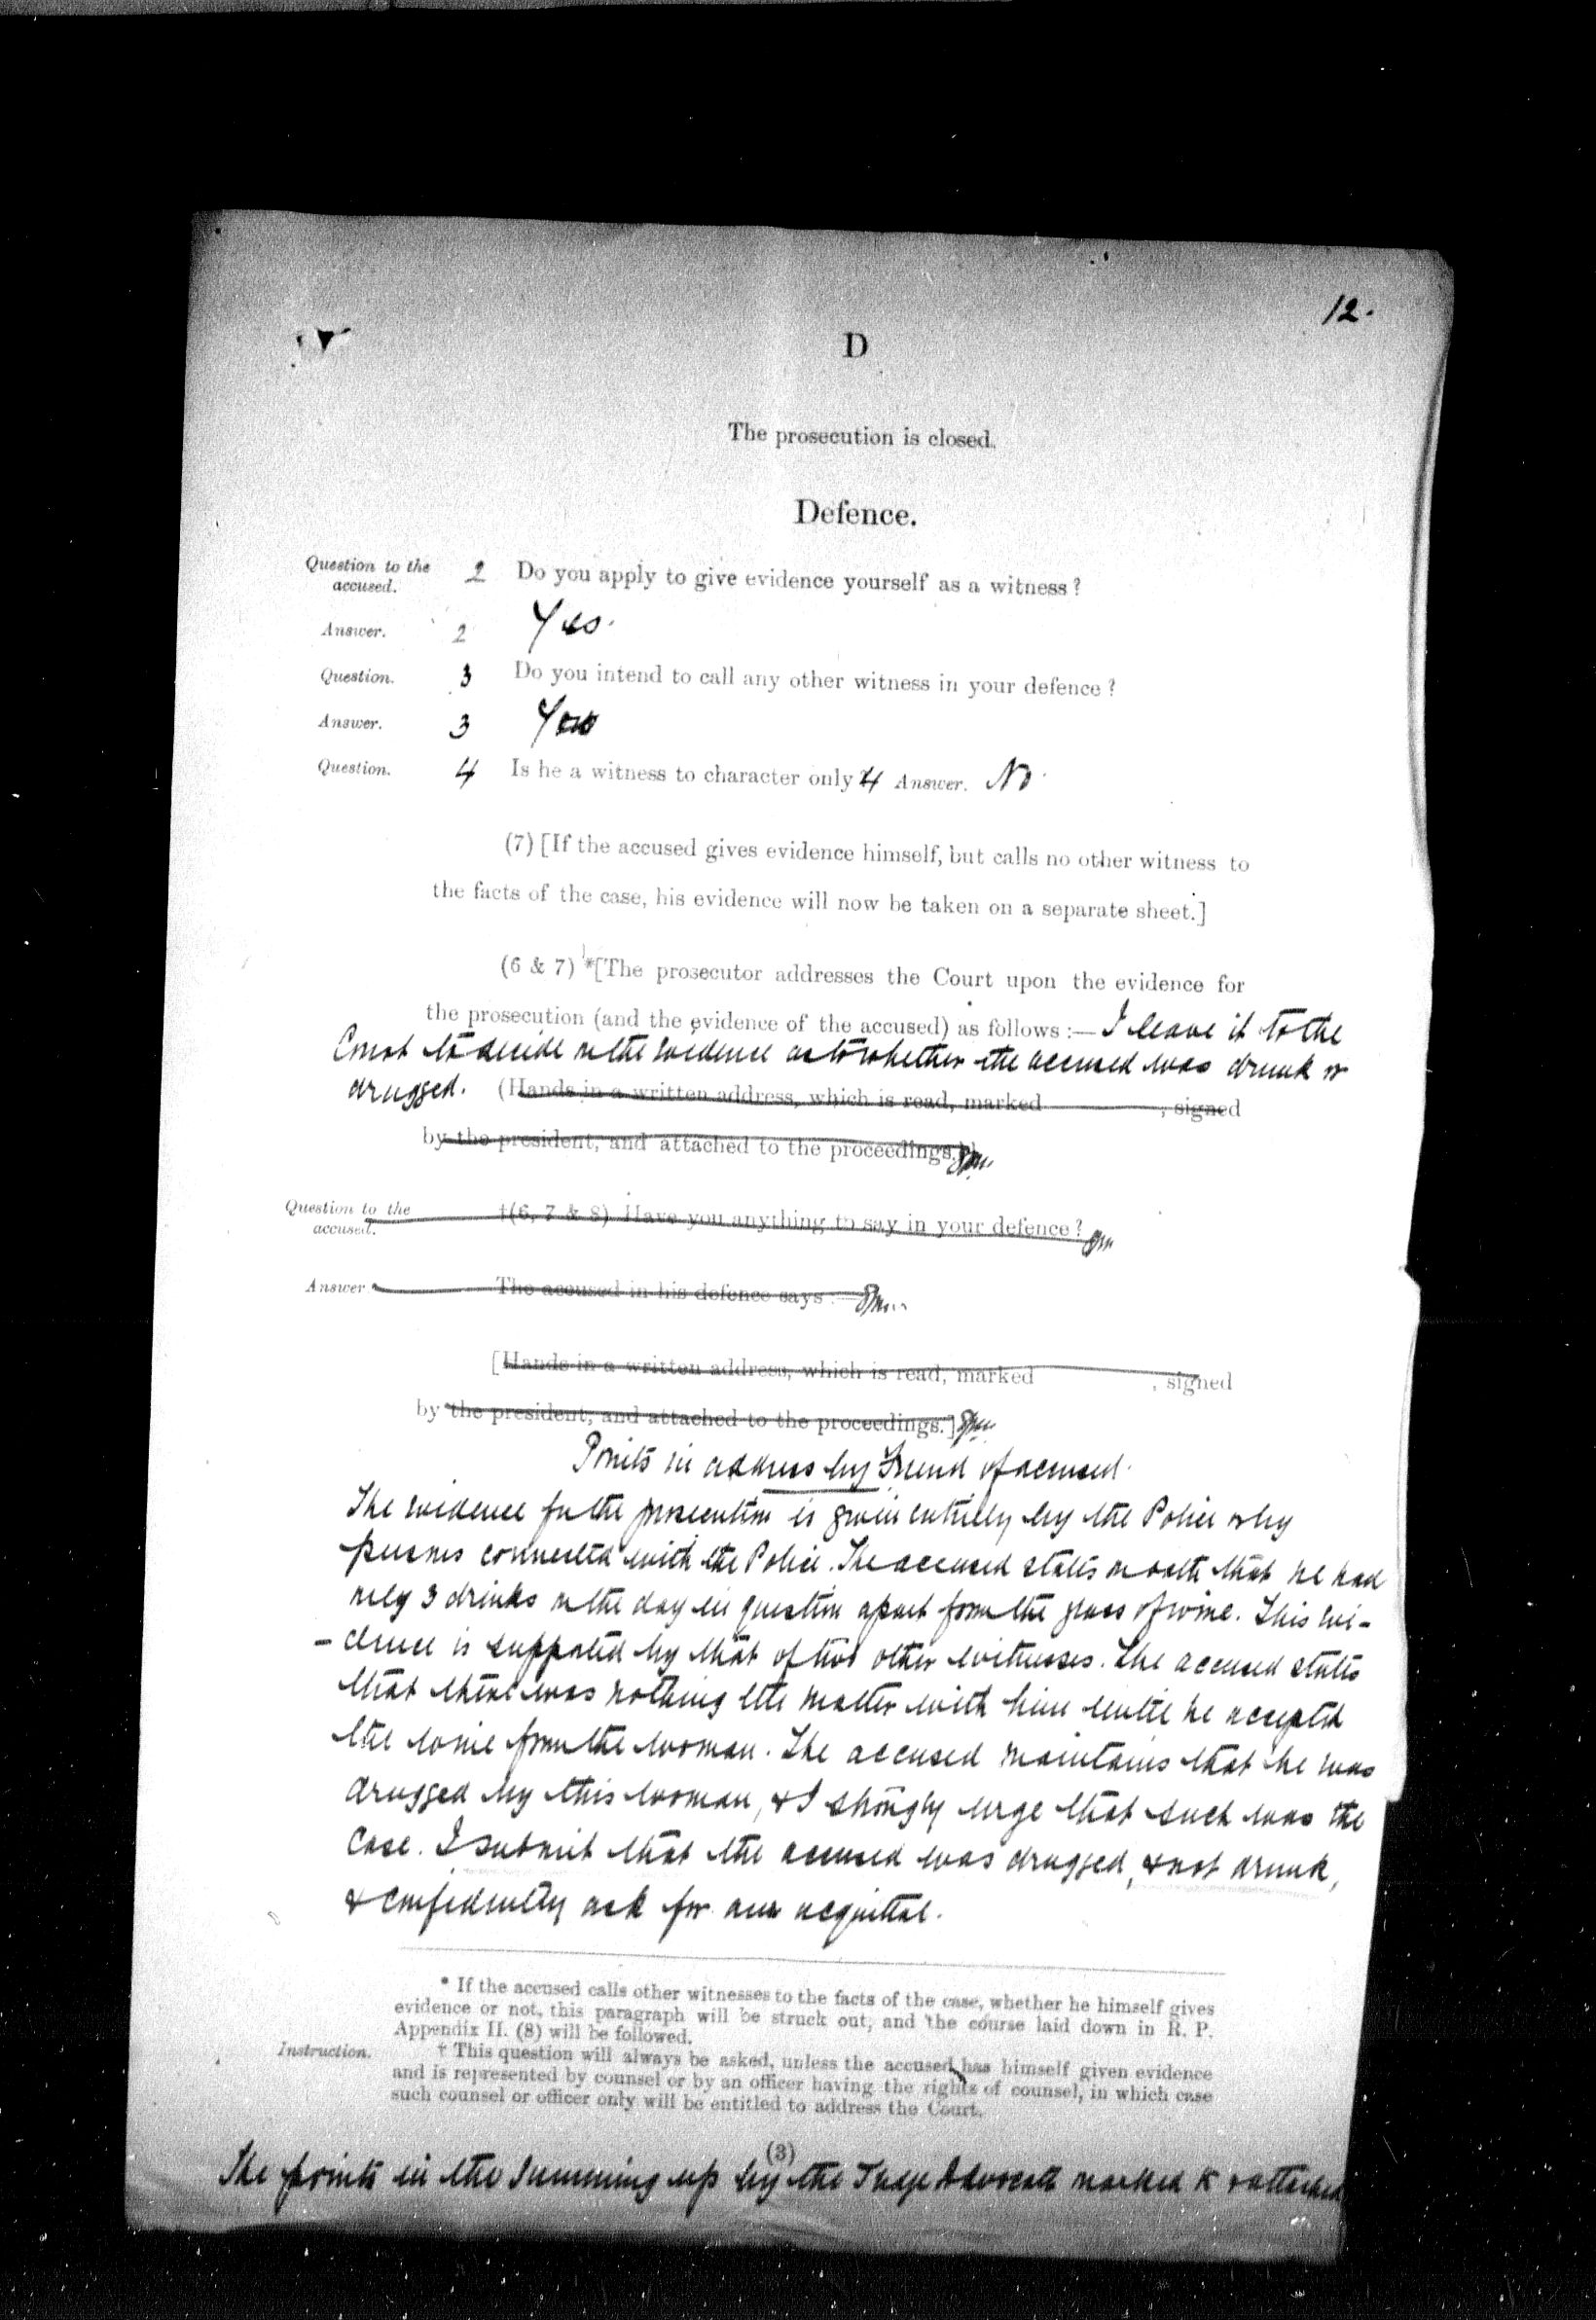 12.
D
The prosecution is closed.
Defence.
Question to the accused. 2 Do you apply to give evidence yourself as a witness?
Answer. 2 Yes.
Question. 3 Do you intend to call any other witness in your defence?
Answer. 3 Yes
Question. 4 Is he a witness to character only 4 Answer. No.
(7) [If the accused gives evidence himself, but calls no other witness to
the facts of the case, his evidence will now be taken on a separate sheet.]
(6 & 7) *[The prosecutor addresses the Court upon the evidence for
the prosecution (and the evidence of the accused) as follows :— I leave it to the
Court to decide on the evidence as to whether the accused was drunk or
drugged. (Hands in a written address, which is read, marked , signed
by the president, and attached to the proceedings.)]
Question to the accused. †(6, 7 & 8) Have you anything to say in your defence?
Answer The accused in his defence says :—
[Hands in a written address, which is read, marked , signed
by the president, and attached to the proceedings.]
Points in address by Friend of accused.
The evidence for the prosecution is given entirely by the Police or by
persons connected with the Police. The accused states on oath that he had
only 3 drinks on the day in question apart from the glass of wine. This evi-
-dence is supported by that of two other witnesses. The accused states
that there was nothing the matter with him until he accepted
the wine from the woman. The accused maintains that he was
drugged by this woman, & I strongly urge that such was the
case. I submit that the accused was drugged, & not drunk,
& confidently ask for an acquittal.
* If the accused calls other witnesses to the facts of the case, whether he himself gives
evidence or not, this paragraph will be struck out, and the course laid down in R. P.
Appendix II. (8) will be followed.
Instruction. † This question will always be asked, unless the accused has himself given evidence
and is represented by counsel or by an officer having the rights of counsel, in which case
such counsel or officer only will be entitled to address the Court.
(3)
The points in the summing up by the Judge Advocate marked K & attached